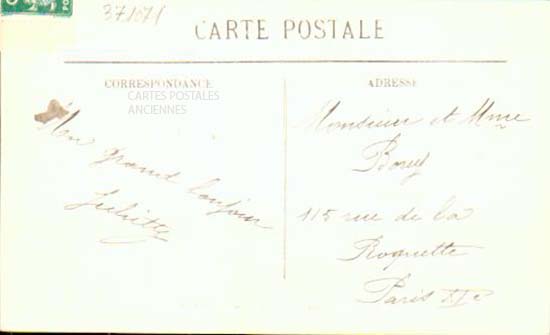 37/071
CARTE POSTALE
CORRESPONDANCE
CARTES POSTALES
ANCIENNES
Un grand bonjour
Juliette
ADRESSE
Monsieur et Mme
115 rue de la
Roquette
Paris XIe